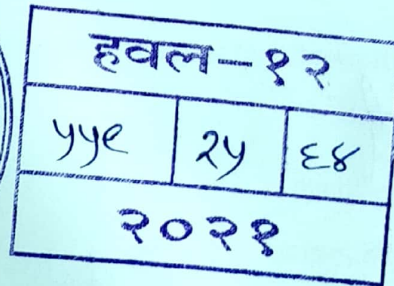 हवल-१२
५५९ २५ ६४
२०२१